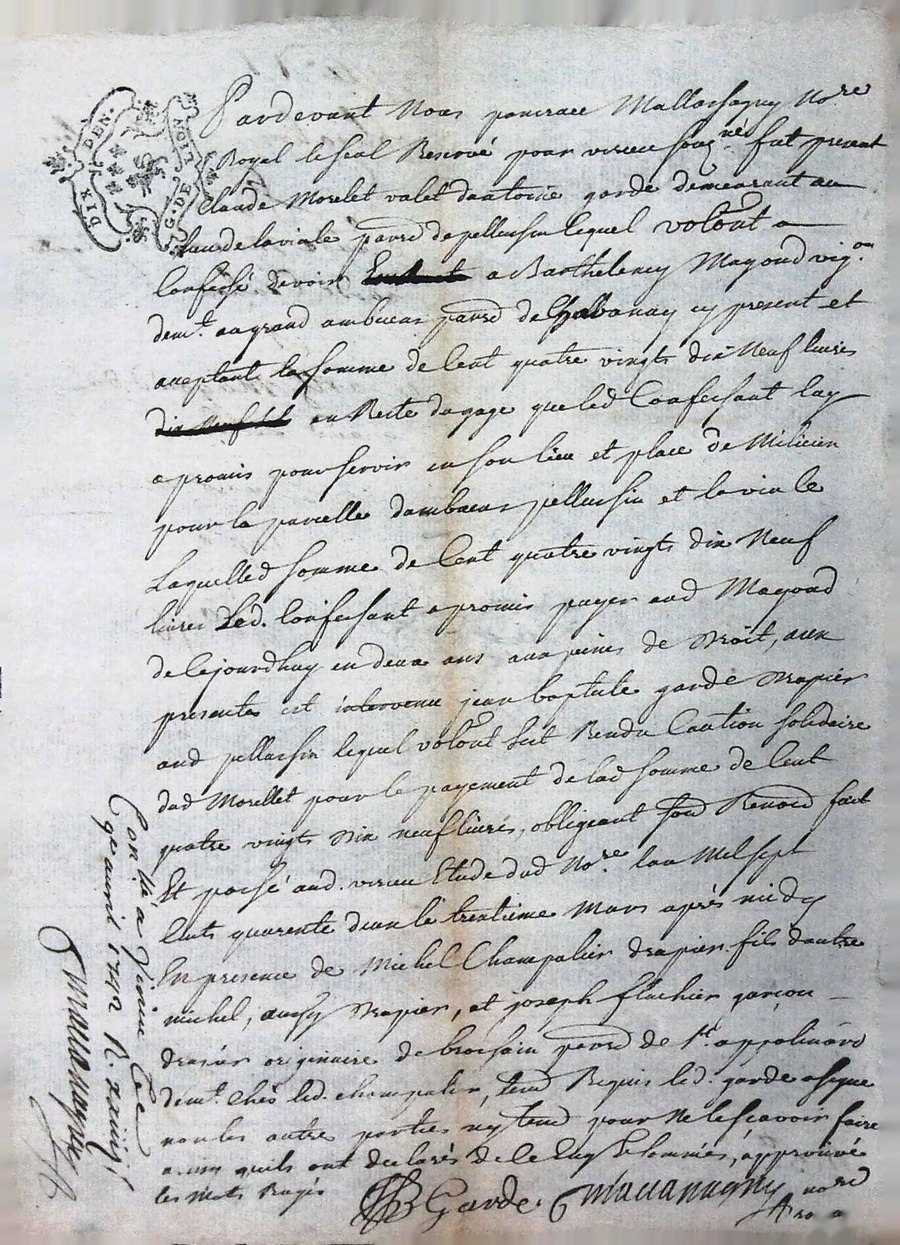 DIX DEN. G. DE LION
Pardevant Nous Nore
Royal Reservé pour virieu soug.né fut present
Claude Morelet valet dantoine garde demeurant au
lieu de laviale parr.e de pellussin lequel volont a
confessé devoir a Barthelemy Mayoud vig.on
dem.t au grand ambuens parr.e de Chavanay cy present et
acceptant la somme de Cent quatre vingts dix Neuf livres
en Reste du gage que led Confessant luy
a promis pour servir en son lieu et place de Milicien
pour la parcelle dambuens pellussin et la viale
Laquelled somme de Cent quatre vingts dix Neuf
livres Led. Confessant a promis payer aud Mayoud
de cejourdhuy en deux ans aux peines de Droit, aux
presentes est intervenu jean baptiste garde Drapier
aud pellussin lequel volont sest Rendu Caution solidaire
dud Morellet pour le payement de lad somme de Cent
quatre vingts dix neuf livres, obligeant fait
Et passé aud. virieu Etude dud Nore lan Mil sept
Cents quarente deux le trentieme Mars après midy
En presence de Michel Champalier drapier fils dautre
michel, aussy Drapier, et joseph flachier garçon
drapier originaire de brossain parr.e de S.t appolinard
dem.t chés led. champalier, Requis led. garde a signé
non les autre parties ny tem pour Ne le scavoir faire
ainsy quils ont declarés de ce Enq.s et sommés, approuvé
les mots Rayés
Garde. nore
Con.lé a Virieu Le
9e avril 1742 R.